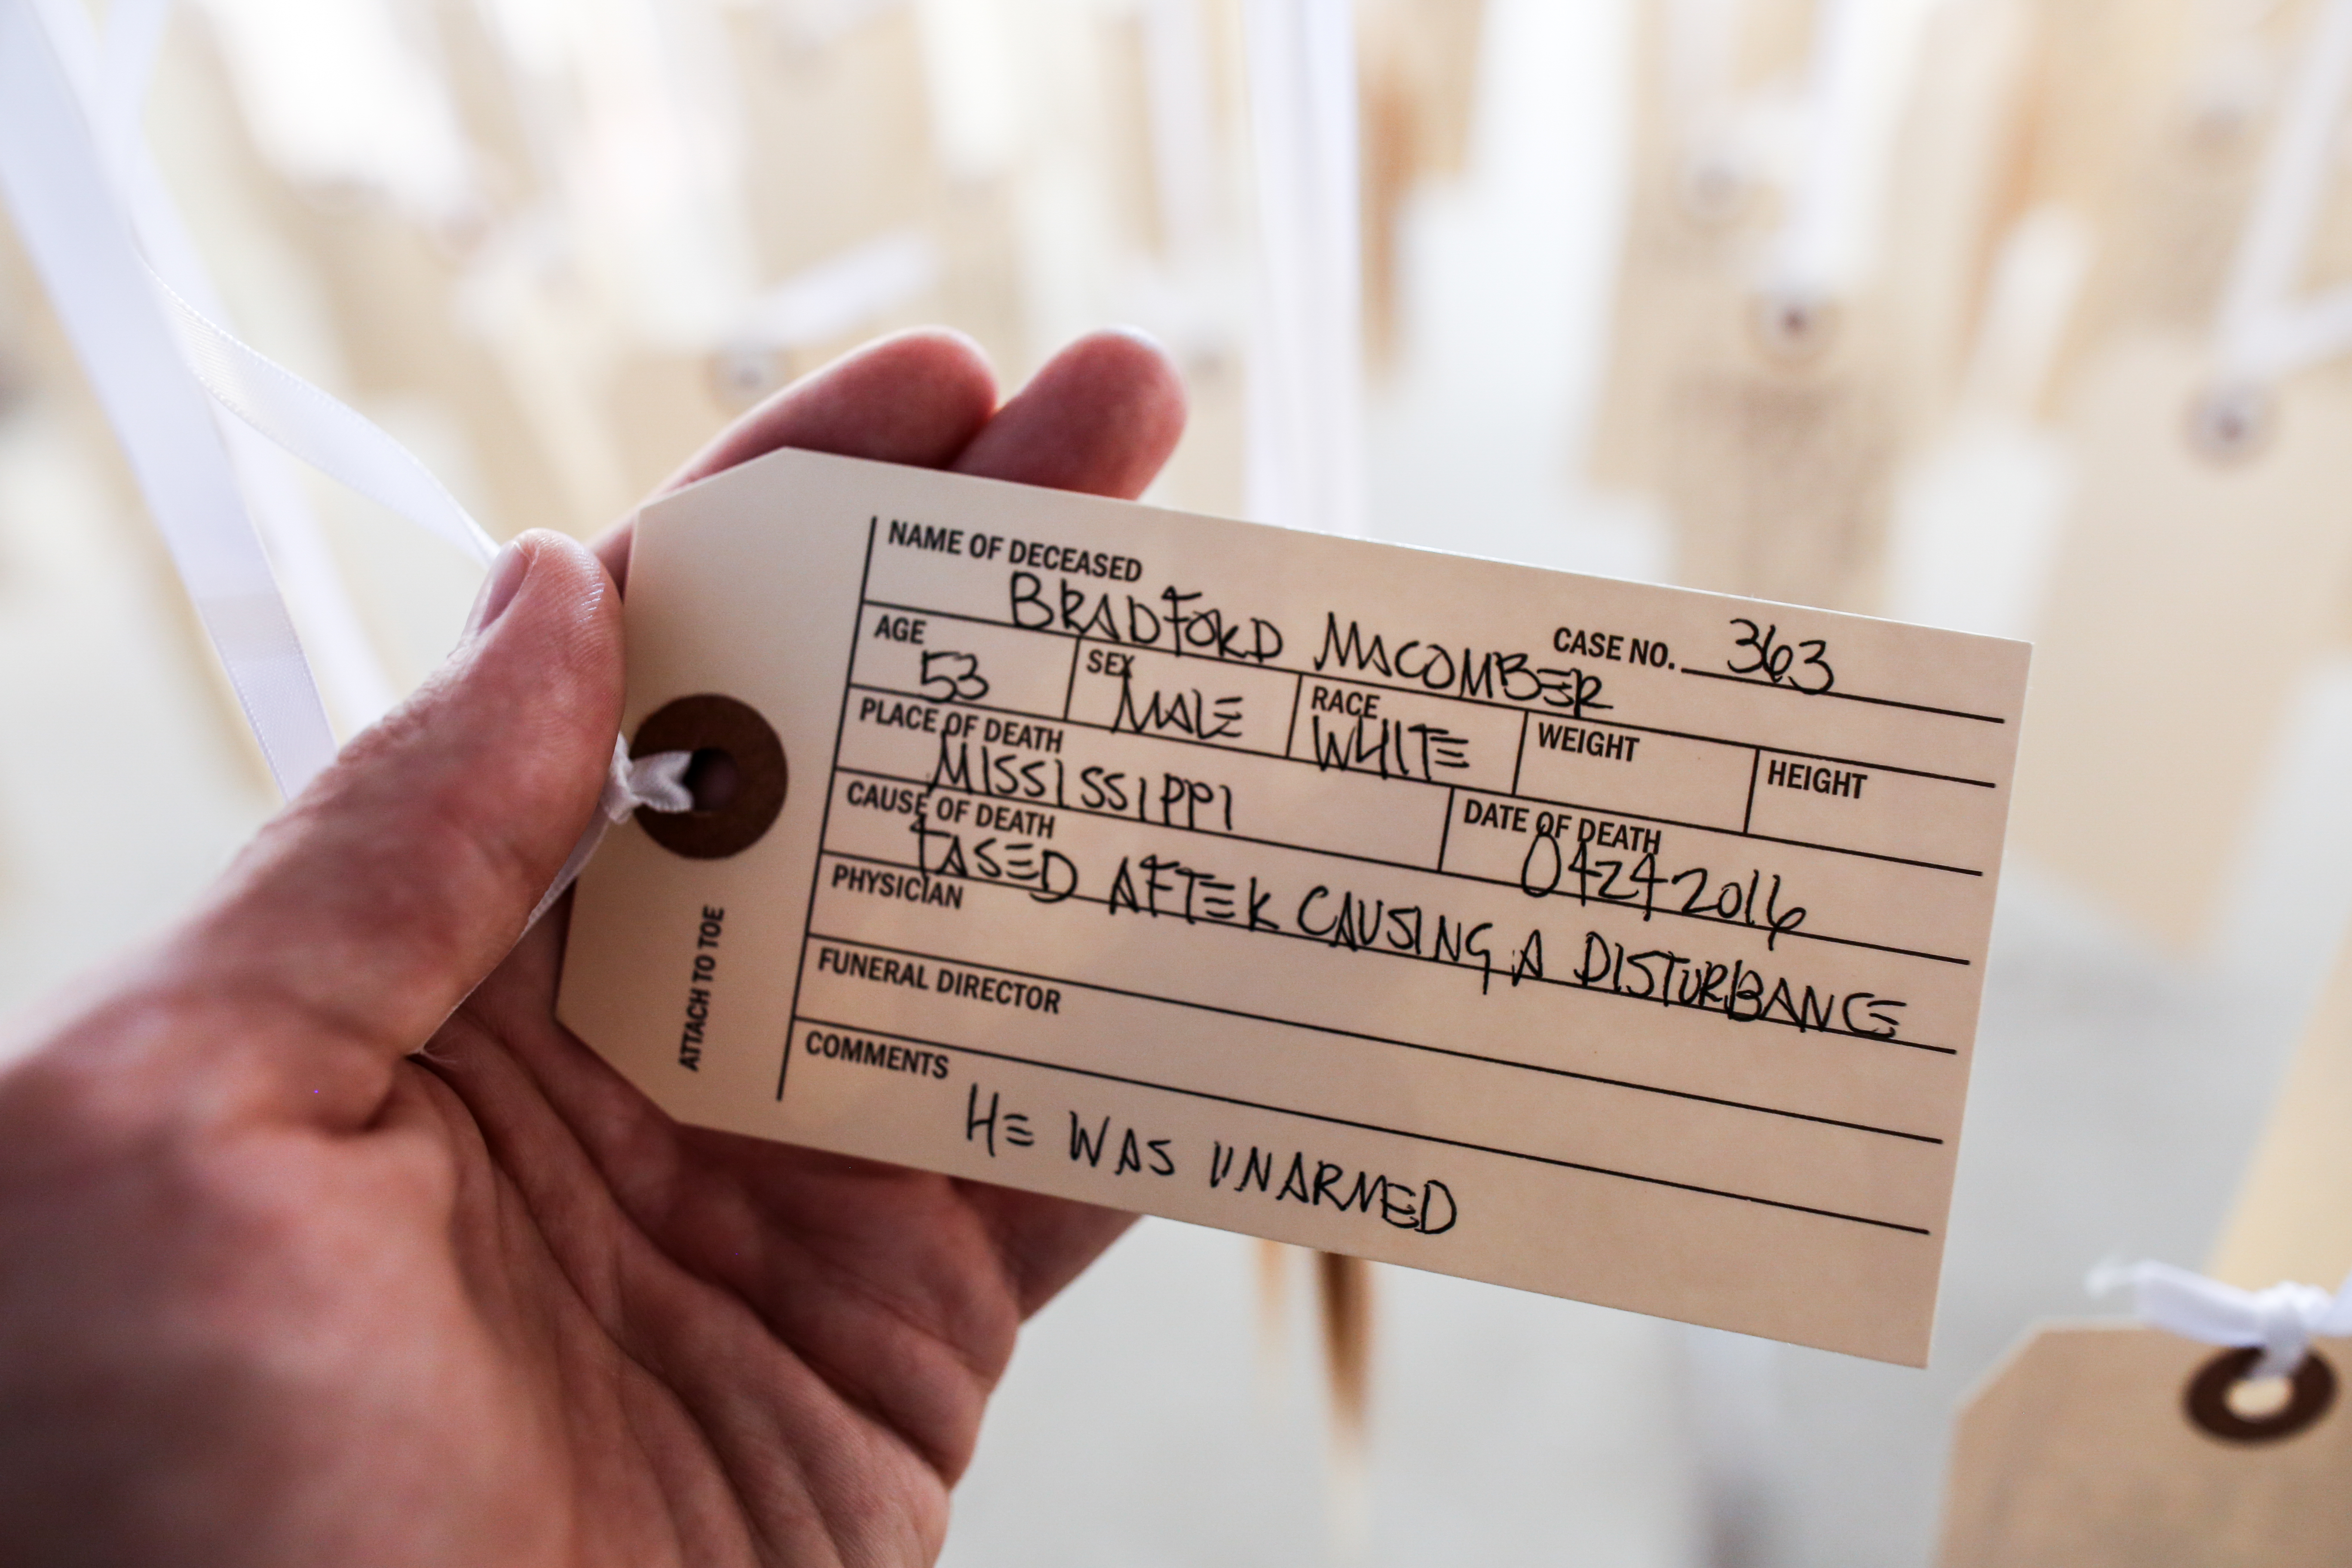 NAME OF DECEASED
BRADFORD MACOMBER
CASE NO. 363
AGE
53
SEX
MALE
RACE
WHITE
WEIGHT
HEIGHT
PLACE OF DEATH
MISSISSIPPI
DATE OF DEATH
04242016
CAUSE OF DEATH
TASED AFTER CAUSING A DISTURBANCE
PHYSICIAN
FUNERAL DIRECTOR
COMMENTS
HE WAS UNARMED
ATTACH TO TOE